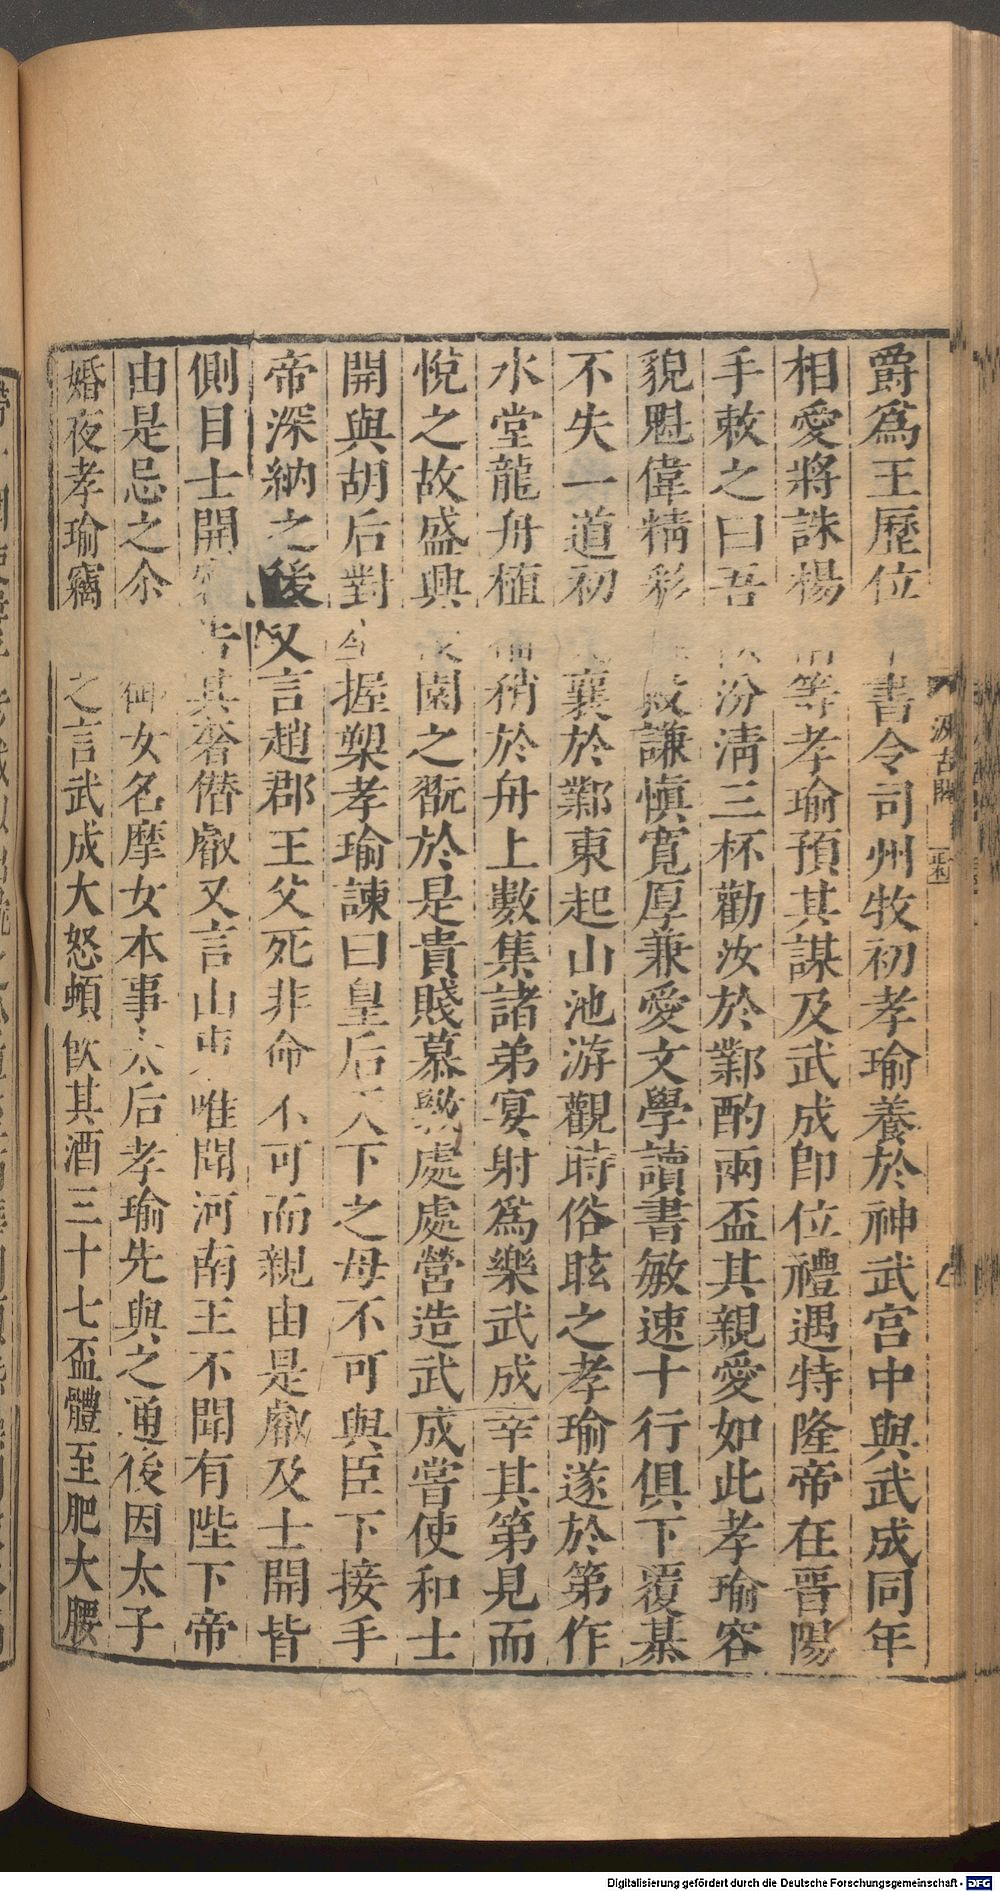 爵爲王歷位中書令司州牧初孝瑜養於神武宮中與武成同年
相愛將誅楊愔等孝瑜預其謀及武成即位禮遇特隆帝在晉陽
手敕之曰吾飲汾清三杯勸汝於鄴酌兩盃其親愛如此孝瑜容
貌魁偉精彩雄毅謙慎寬厚兼愛文學讀書敏速十行俱下覆棊
不失一道初文襄於鄴東起山池游觀時俗眩之孝瑜遂於第作
水堂龍舟植幡矟於舟上數集諸弟宴射爲樂武成幸其第見而
悅之故盛興後園之翫於是貴賤慕斅處處營造武成嘗使和士
開與胡后對坐握槊孝瑜諫曰皇后天下之母不可與臣下接手
帝深納之後又言趙郡王父死非命不可而親由是叡及士開皆
側目士開密告其奢僭叡又言山東唯聞河南王不聞有陛下帝
由是忌之尒朱御女名摩女本事太后孝瑜先與之通後因太子
婚夜孝瑜竊與之言武成大怒頓飲其酒三十七盃體至肥大腰
汲古閣
Digitalisierung gefördert durch die Deutsche Forschungsgemeinschaft - DFG